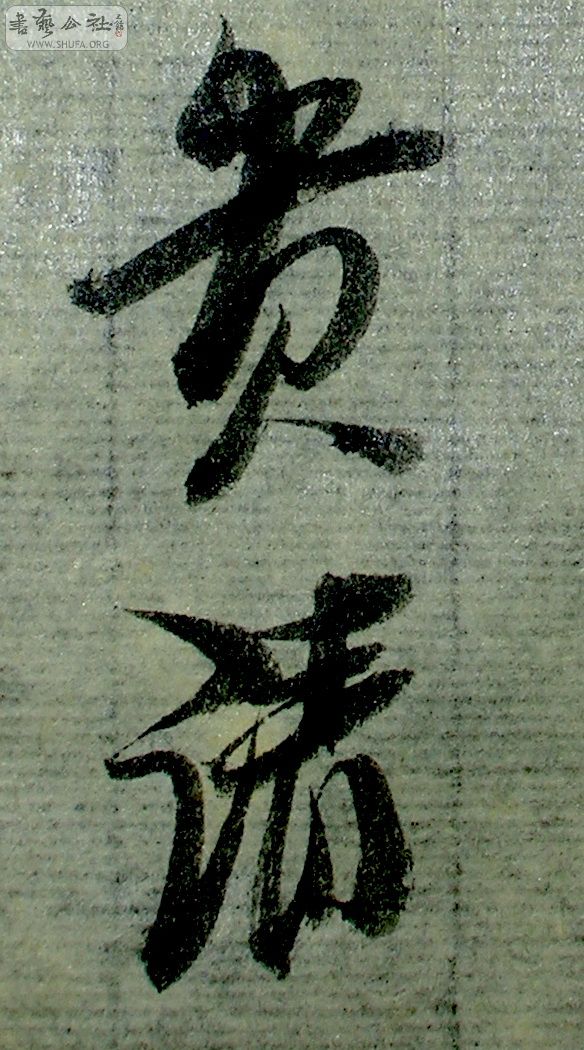 書藝公社
WWW.SHUFA.ORG
贵
清